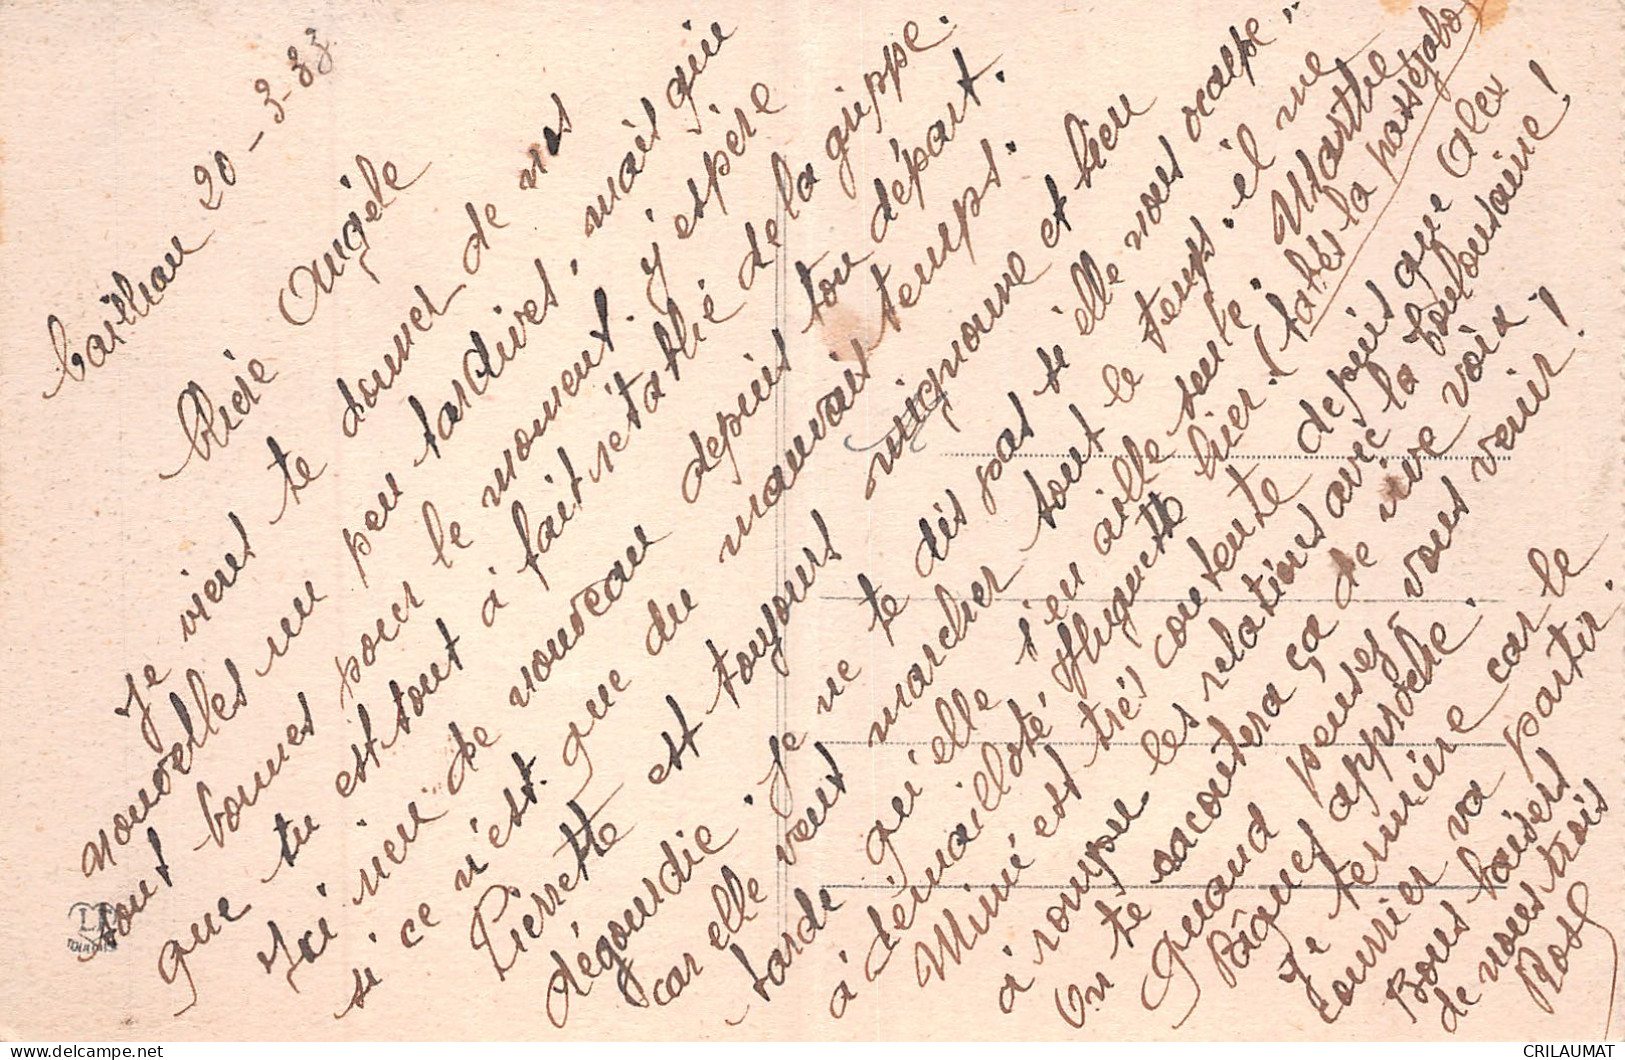 20-3-33
Chère Angèle
Je viens te donner de nos
nouvelles un peu tardives, mais qui
sont bonnes pour le moment. J'espère
que tu es tout à fait rétablie de la grippe.
Ici rien de nouveau depuis ton départ.
si ce n'est que du mauvais temps.
Pierrette est toujours mignonne et bien
dégourdie. Je ne te dis pas si elle nous occupe"
car elle veut marcher tout le temps. il me
tarde qu'elle s'en aille seule. Marthe
à démailloté Huguette hier. (faites la passejabo)
Mimi est très contente depuis que Alex
à rompu les relations avec la
On te racontera ça de vive voix.
Quand pensez vous venir!
Pâques approche.
Je termine car le
courrier va partir.
Bons baisers
de nous trois
Rose
CRILAUMAT